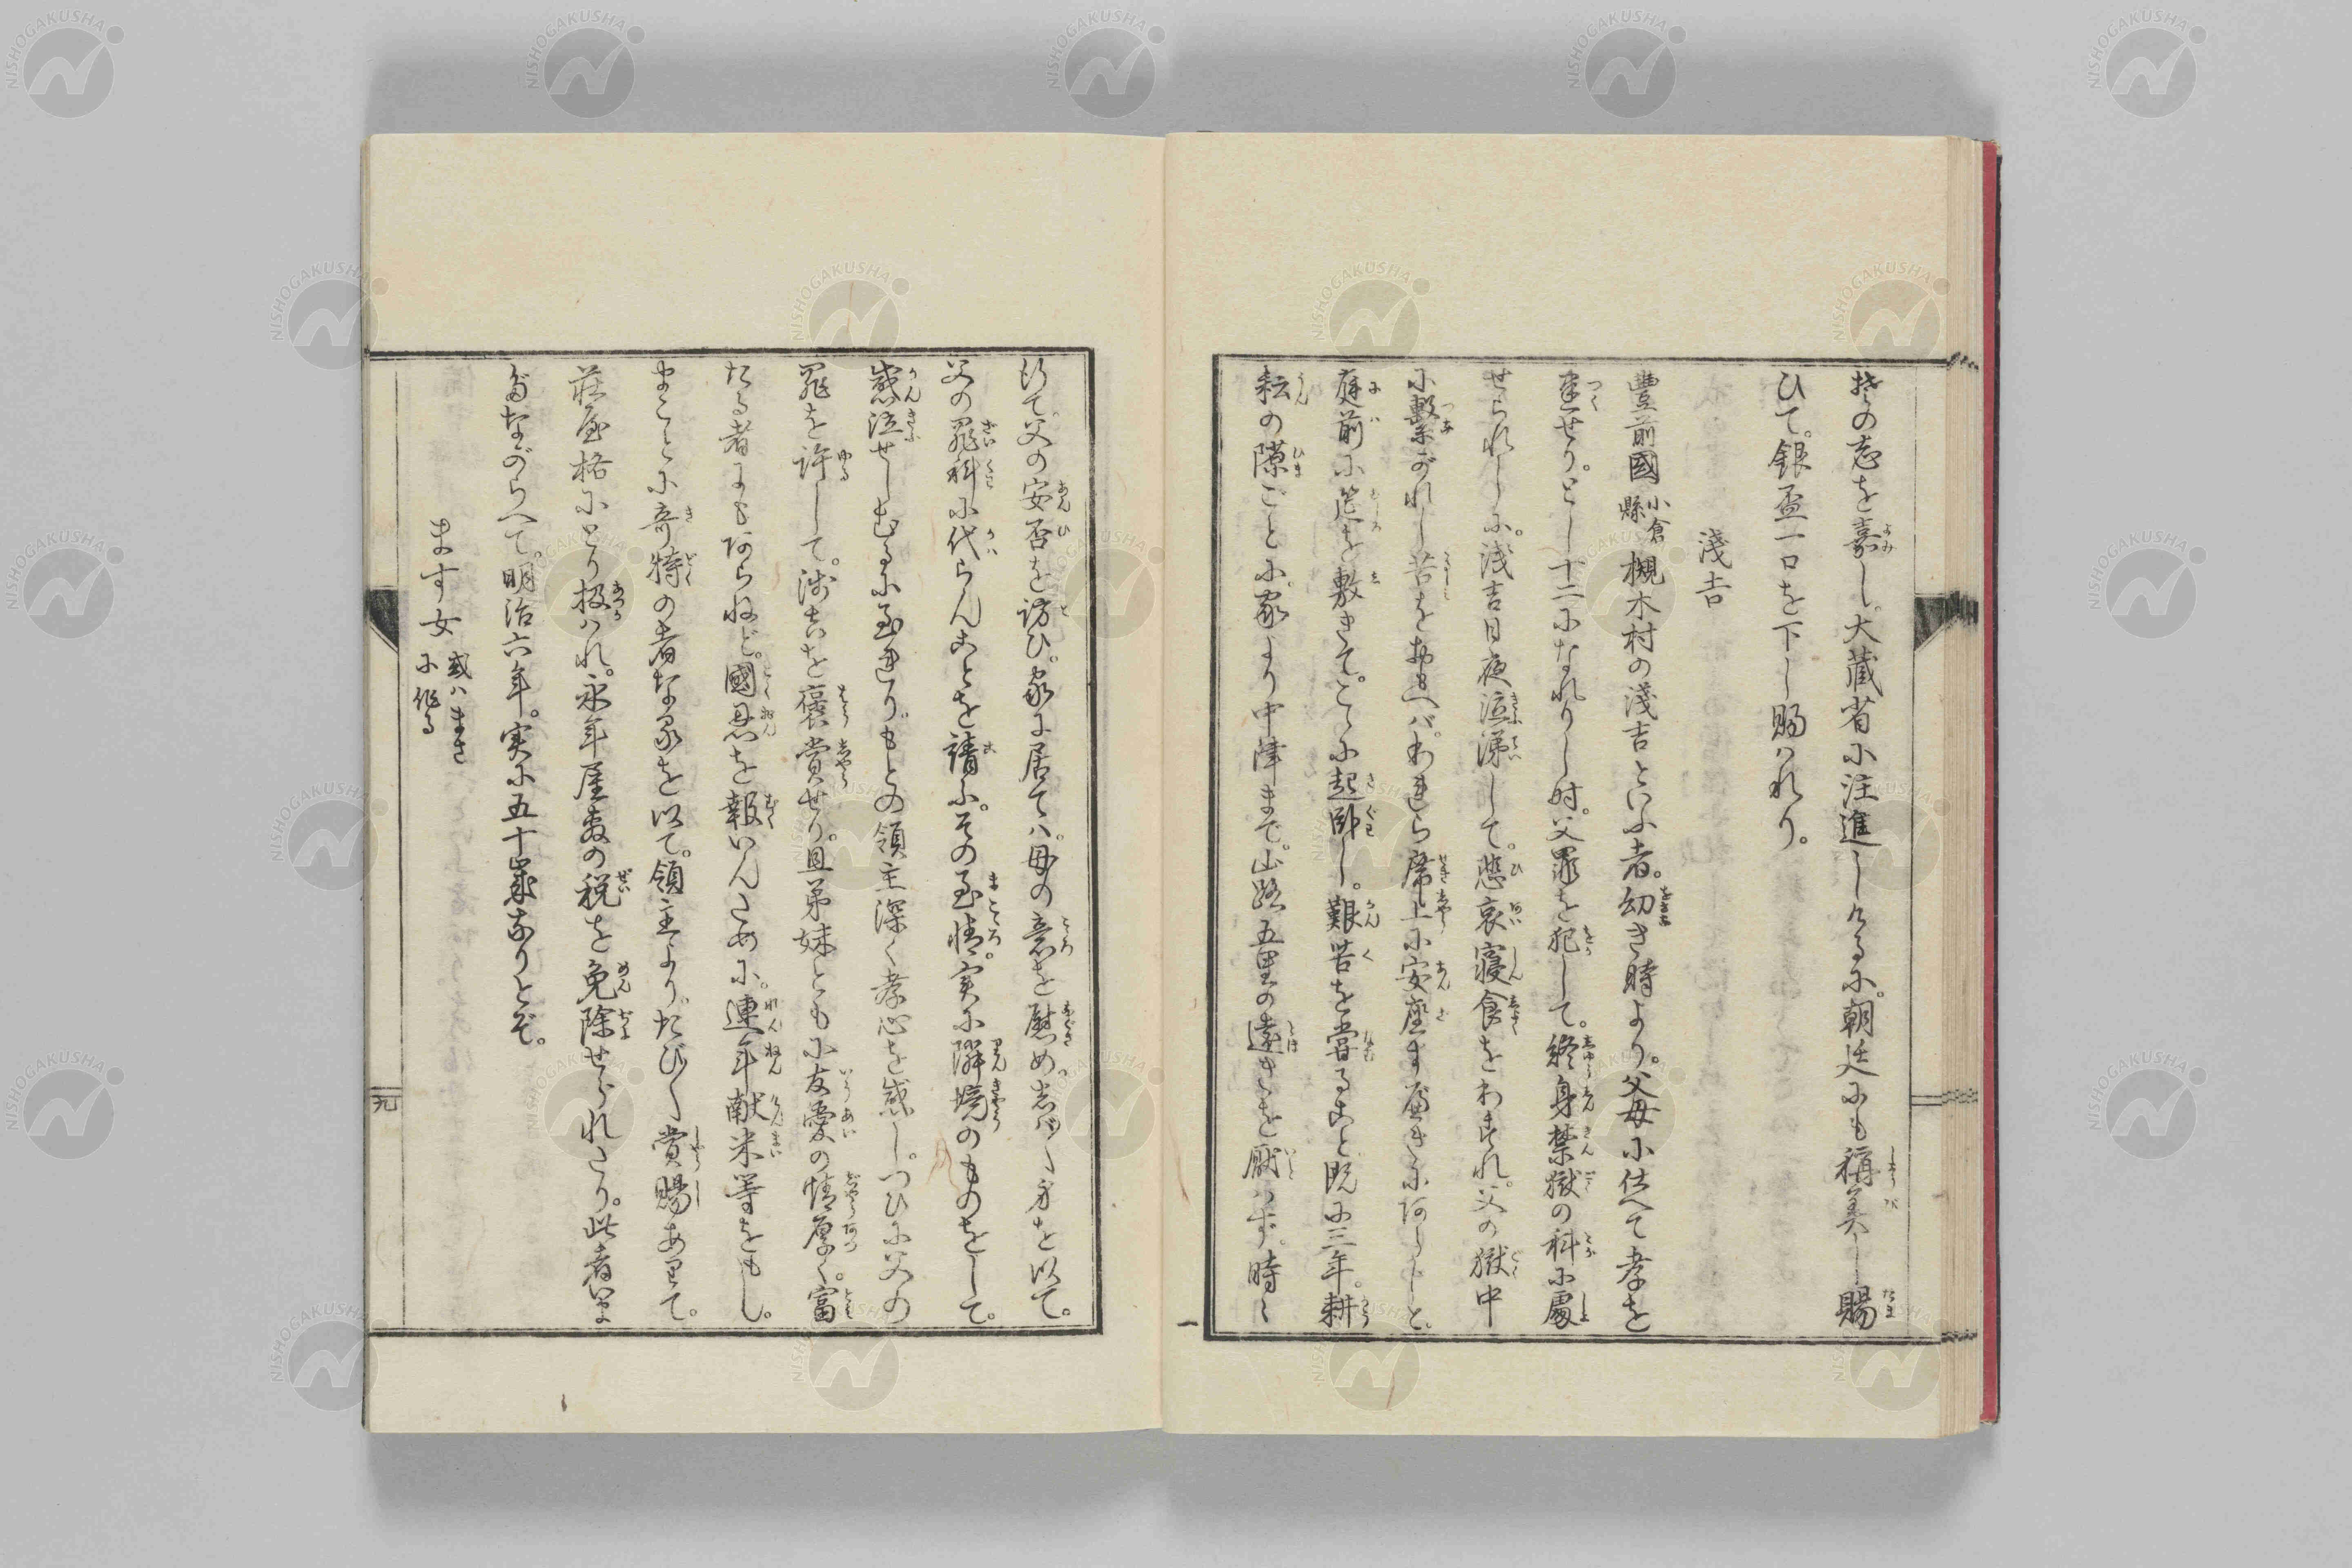 其の志を嘉し。大蔵省に注進しけるに。朝廷にも稱美し賜
ひて。銀盃一口を下し賜はれり。
淺吉
豐前國小倉縣槻木村の淺吉といふ者。幼き時より。父母に仕へて孝を
盡せり。とし十二になれりし時。父罪を犯して。終身禁獄の科に處
せられしに。淺吉日夜泣涕して。悲哀寢食をわすれ。父の獄中
に繋がれし苦を思へば。われら席上に安座すべきにあらずと。
庭前に筵を敷きて。こゝに起臥し。艱苦を嘗ること既に三年。耕
耘の隙ごとに。家より中津まで。山路五里の遠きを厭はず。時〻
行て。父の安否を訪ひ。家に居ては。母の意を慰め。しば〳〵身を以て。
父の罪科に代らんことを請ふ。その至情。実に隣境のものをして。
感泣せしむるに至れり。もとの領主深く孝心を感じ。つひに父の
罪を許して。淺吉を褒賞せり。且弟妹ともに友愛の情厚く。富
たる者にもあらねど。國恩を報いんために。連年献米等をもし。
まことに奇特の者なるを以て。領主より。たび〳〵賞賜ありて。
莊屋格にとり扱はれ。永年屋敷の税を免除せられたり。此者いま
だながらへて。明治六年。実に五十歳なりとぞ。
ます女 或はまさに作る
NISHOGAKUSHA